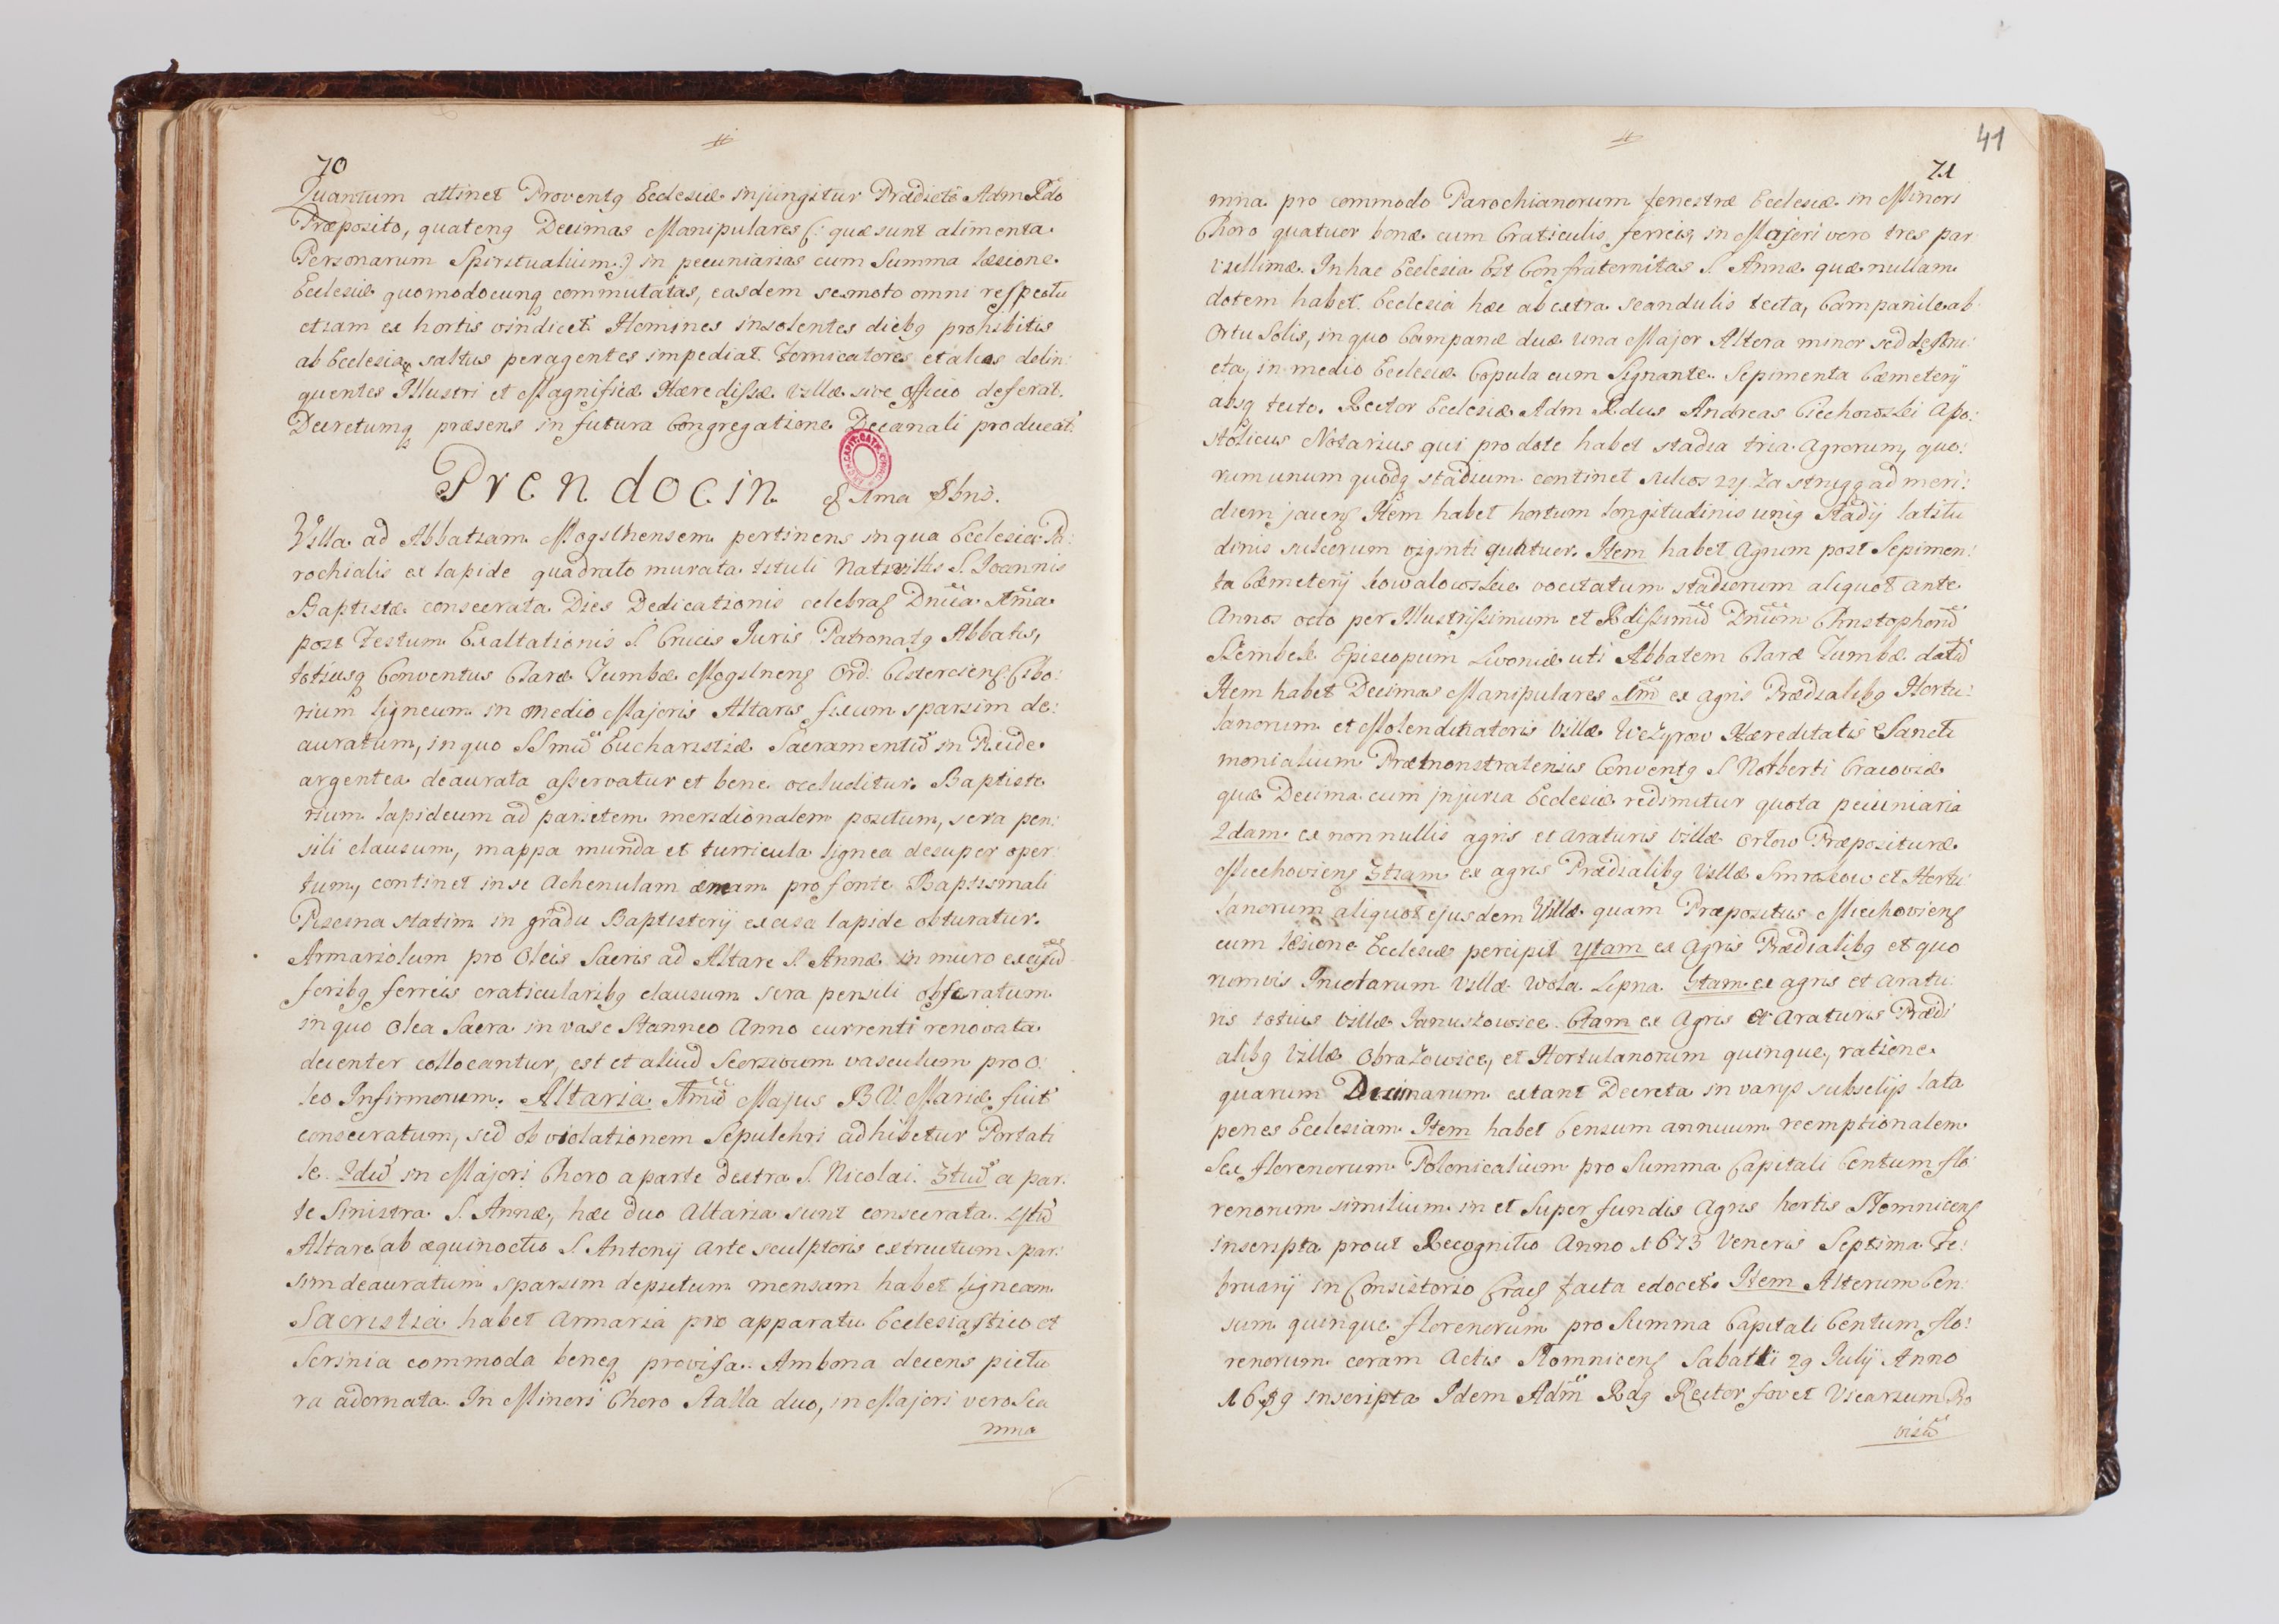 70
Quantum attinet Proventq Ecclesiæ injungitur Prædicto Adm Rdo
Præposito, quatenq Decimas Manipulares (: quæ sunt alimenta
Personarum Spiritualium :) in pecuniarias cum Summa læsione
Ecclesiæ quomodocunq commutatas, easdem semoto omni respectu
etiam ex hortis vindicet. Homines insolentes diebq prohibitis
ab Ecclesia saltus peragentes impediat. Fornicatores et alios delin:
quentes Illustri et Magnificæ Hæredissæ Villæ sive Officio deferat.
Decretumq præsens in futura Congregatione Decanali producat.
Prendocin 8bris.
Villa ad Abbatiam Mogilnensem pertinens in qua Ecclesia Pa:
rochialis ex lapide quadrato murata tituli Nativittis S. Joannis
Baptistæ consecrata Dies Dedicationis celebraĝ Dnica
post Festum Exaltationis S. Crucis Juris Patronatq Abbatis,
totiusq Conventus Claræ Tumbæ Mogilneng Ord: Cisterciens Cibo:
rium ligneum in medio Majoris Altaris fixum sparsim de:
auratum, in quo SSmũ Eucharistiæ Sacramentũ in Pixide
argentea deaurata asservatur et bene occluditur. Baptiste
rium lapideum ad parietem meridionalem positum, sera pen:
sili clausum, mappa munda et turricula lignea desuper oper
tum, continet in se Achenulam æneam pro fonte Baptismali
Piscina statim in gradu Baptisterij excisa lapide obturatur.
Armariolum pro Oleis Sacris ad Altare S. Annæ in muro excisũ
foribq ferreis craticularibq clausum sera pensili obseratum
in quo Olea Sacra in vase Stanneo Anno currenti renovata
decenter collocantur, est et aliud Seorsivum vasculum pro O:
leo Infirmorum. Altaria Majus B V. Mariæ fuit
consecratum, sed ob violationem Sepulchri adhibetur Portati
le. 2dũ in Majori Choro a parte dextra S. Nicolai. 3tiũ a par:
te Sinistra S. Annæ, hæc duo Altaria sunt consecrata. 4tũ
Altare ab æquinoctio S. Antonij arte sculptoris extructum spar:
sim deauratum sparsim depictum mensam habet ligneam
Sacristia habet Armaria pro apparatu Ecclesiastico et
Scrinia commoda beneq provisa. Ambona decens pictu
ra adornata. In Minori Choro Stalla duo, in Majori vero Sca
mna
41
71
mna pro commodo Parochianorum fenestræ Ecclesiæ in Minori
Choro quatuor bonæ cum Craticulis ferreis, in Majori vero tres par
vullimæ. In hac Ecclesia Est Confraternitas S. Annæ quæ nullam
dotem habet. Ecclesia hæc ab extra scandulis tecta, Campanile ab
Ortu Solis, in quo Campanæ duæ una Major Altera minor sed destru:
cta, in medio Ecclesiæ Copula cum Signante. Sepimenta Cæmeterij
absq tecto. Rector Ecclesiæ Adm Rdus Andreas Ciechowski Apo:
stolicus Notarius qui pro dote habet stadia tria Agrorum, quo:
rum unum quodq stadium continet sulcos 24. Za strugą ad meri:
diem jaceng Item habet hortum longitudinis uniq Stadij latitu
dinis sulcorum viginti quatuor. Item habet Agrum post Sepimen:
ta Cæmeterij kowalowskie vocitatum stadiorum aliquot ante
Annos octo per Illustrissimum et Rdissimũ Dnum Christophorũ
Szembek Episcopum Livoniæ uti Abbatem Claræ Tumbæ datũ
Item habet Decimas Manipulares ex agris Prædialibq Hortu:
lanorum et Molendinatoris Villæ Wężyrow Hæreditatis Sancti
monialium Præmonstratensis Conventq S Norberti Cracoviæ
quæ Decima cum injuria Ecclesiæ redimitur quota pecuniaria
2dam ex nonnullis agris et araturis Villæ Orłow Præposituræ
Miechovieng 3tiam ex agris Prædialibq Villæ Smroków et Hortu
lanorum aliquot ejusdem Villæ quam Præpositus Miechovieng
cum læsione Ecclesiæ percipit 4tam ex Agris Prædialibq et quo
rumvis Inwtarum Villæ Wola Lipna. 5tam ex agris et aratu:
ris totius Villæ Januszowice. 6tam ex Agris et Araturis Prædi
alibq Villæ Obrażowice, et Hortulanorum quinque, ratione
quarum Decimarum extant Decreta in varys subselijs lata
penes Ecclesiam. Item habet Censum annuum reemptionalem
Sex florenorum Polonicalium pro Summa Capitali Centum flo:
renorum similium in et Super fundis Agris hortis Słomniceng
inscripta prout Recognitio Anno 1673 Veneris Septima Fe:
bruarij in Consistorio Crac facta edocet. Item Alterum Cen:
sum quinque florenorum pro Summa Capitali Centum flo:
renorum coram Actis Słomniceng Sabathi 29 Julij Anno
inscripta Idem Adm Rdq Rector fovet Vicarium Pro
visũ